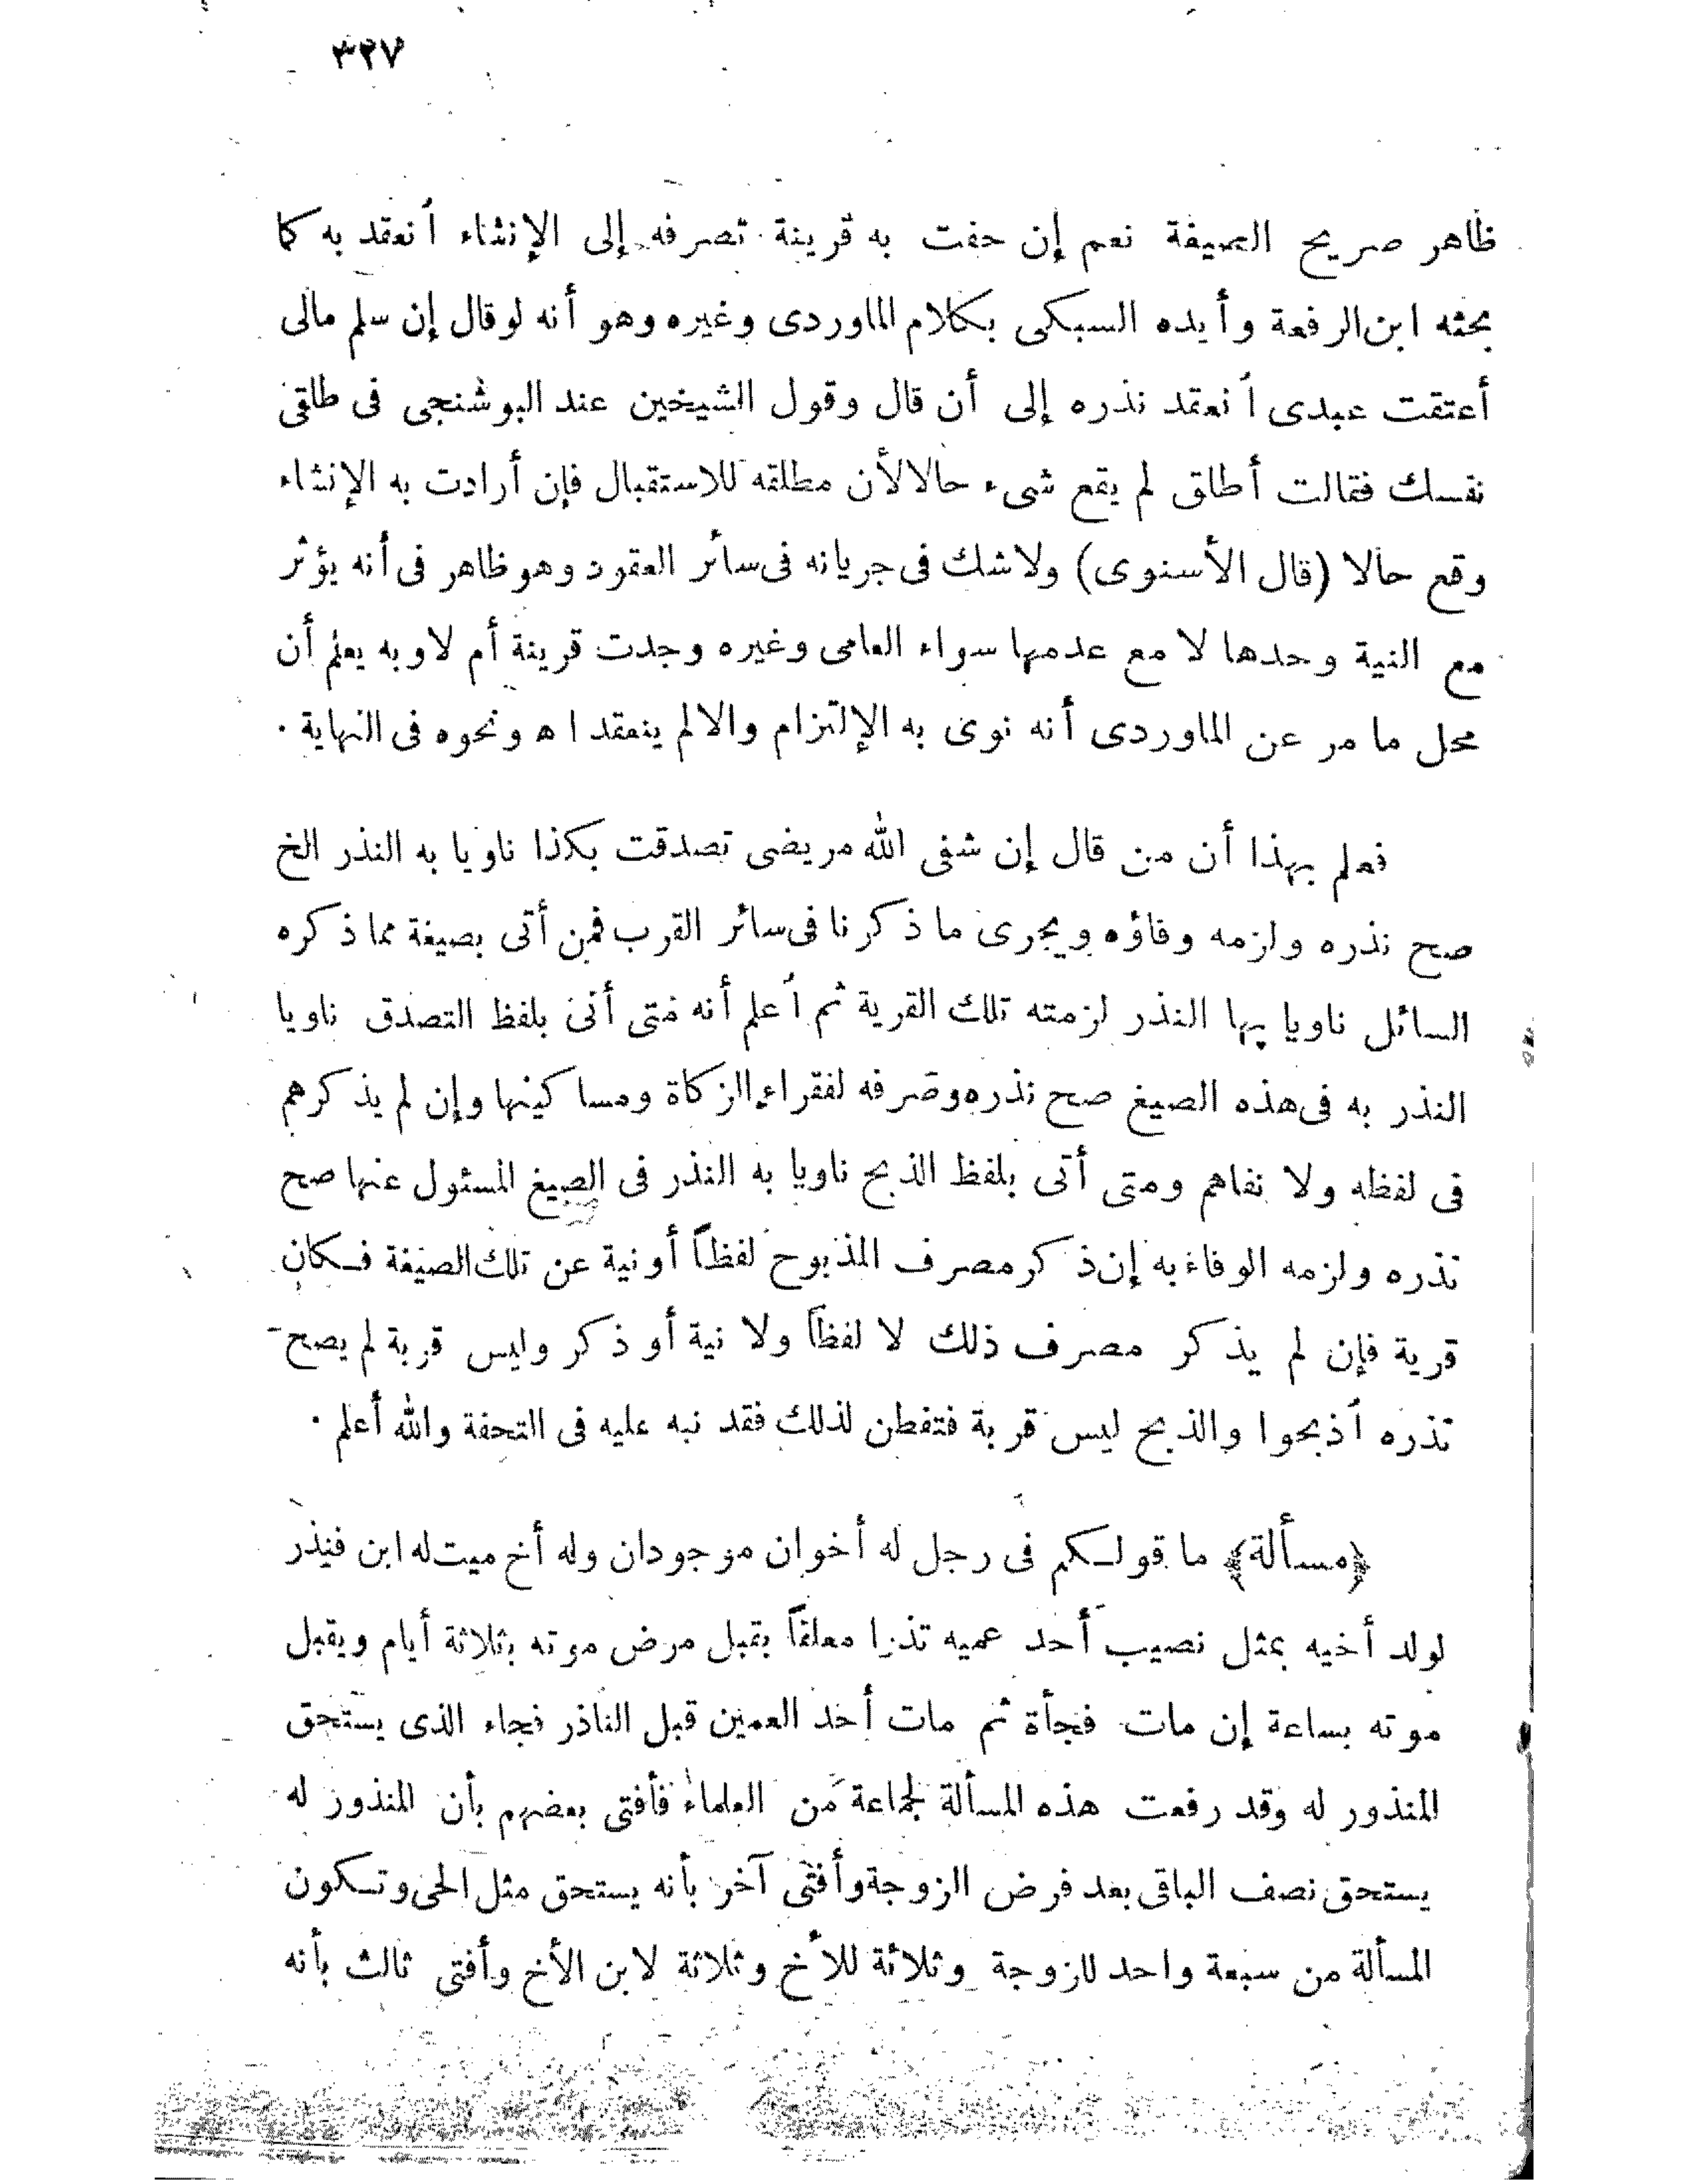 ٣٢٧
ظاهر صريح الصيغة نعم إن حفت به قرينة تصرفه إلى الإنشاء اُنعقد به كما
بحثه ابن الرفعة وأيده السبكى بكلام الماوردى وغيره وهو أنه لو قال إن سلم مالى
أعتقت عبدى اُنعقد نذره إلى أن قال وقول الشيخين عند البوشنجى فى طلقى
نفسك فقالت أطلق لم يقع شىء حالا لأن مطلقه للاستقبال فإن أرادت به الإنشاء
وقع حالا (قال الأسنوى) ولا شك فى جريانه فى سائر العقود وهو ظاهر فى أنه يؤثر
مع النية وحدها لا مع عدمها سواء العامى وغيره وجدت قرينة أم لا وبه يعلم أن
محل ما مر عن الماوردى أنه نوى به الإلتزام والا لم ينعقد ا ه ونحوه فى النهاية .
فعلم بهذا أن من قال إن شفى الله مريضى تصدقت بكذا ناويا به النذر الخ
صح نذره ولزمه وفاؤه ويجرى ما ذكرنا فى سائر القرب فمن أتى بصيغة مما ذكره
السائل ناويا بها النذر لزمته تلك القربة ثم اُعلم أنه متى أتى بلفظ التصدق ناويا
النذر به فى هذه الصيغ صح نذره وصرفه لفقراء الزكاة ومساكينها وإن لم يذكرهم
فى لفظه ولا نفاهم ومتى أتى بلفظ الذبح ناويا به النذر فى الصيغ المسئول عنها صح
نذره ولزمه الوفاء به إن ذكر مصرف المذبوح لفظاً أو نية عن تلك الصيغة فكان
قربة فإن لم يذكر مصرف ذلك لا لفظاً ولا نية أو ذكر وليس قربة لم يصح
نذره اُذبحوا والذبح ليس قربة فتفطن لذلك فقد نبه عليه فى التحفة والله أعلم .
﴿مسألة﴾ ما قولكم فى رجل له أخوان موجودان وله أخ ميت له ابن فنذر
لولد أخيه بمثل نصيب أحد عميه نذرا معلقاً بقبل مرض موته بثلاثة أيام وبقبل
موته بساعة إن مات فجأة ثم مات أحد العمين قبل الناذر فجاء الذى يستحق
المنذور له وقد رفعت هذه المسألة لجماعة من العلماء فأفتى بعضهم بأن المنذور له
يستحق نصف الباقى بعد فرض الزوجة وأفتى آخر بأنه يستحق مثل الحى وتكون
المسألة من سبعة واحد للزوجة وثلاثة للأخ وثلاثة لابن الأخ وأفتى ثالث بأنه